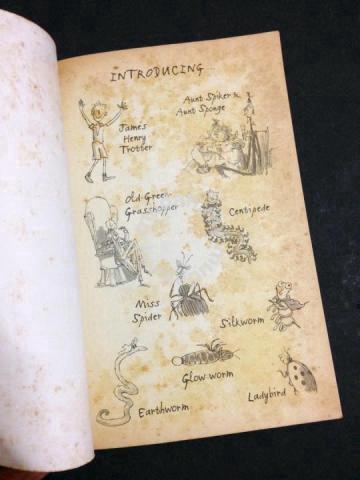 INTRODUCING...
Aunt Spiker &
Aunt Sponge
James
Henry
Trotter
Old-Green-
Grasshopper
Centipede
Miss
Spider
Silkworm
Glow-worm
Earthworm
Ladybird